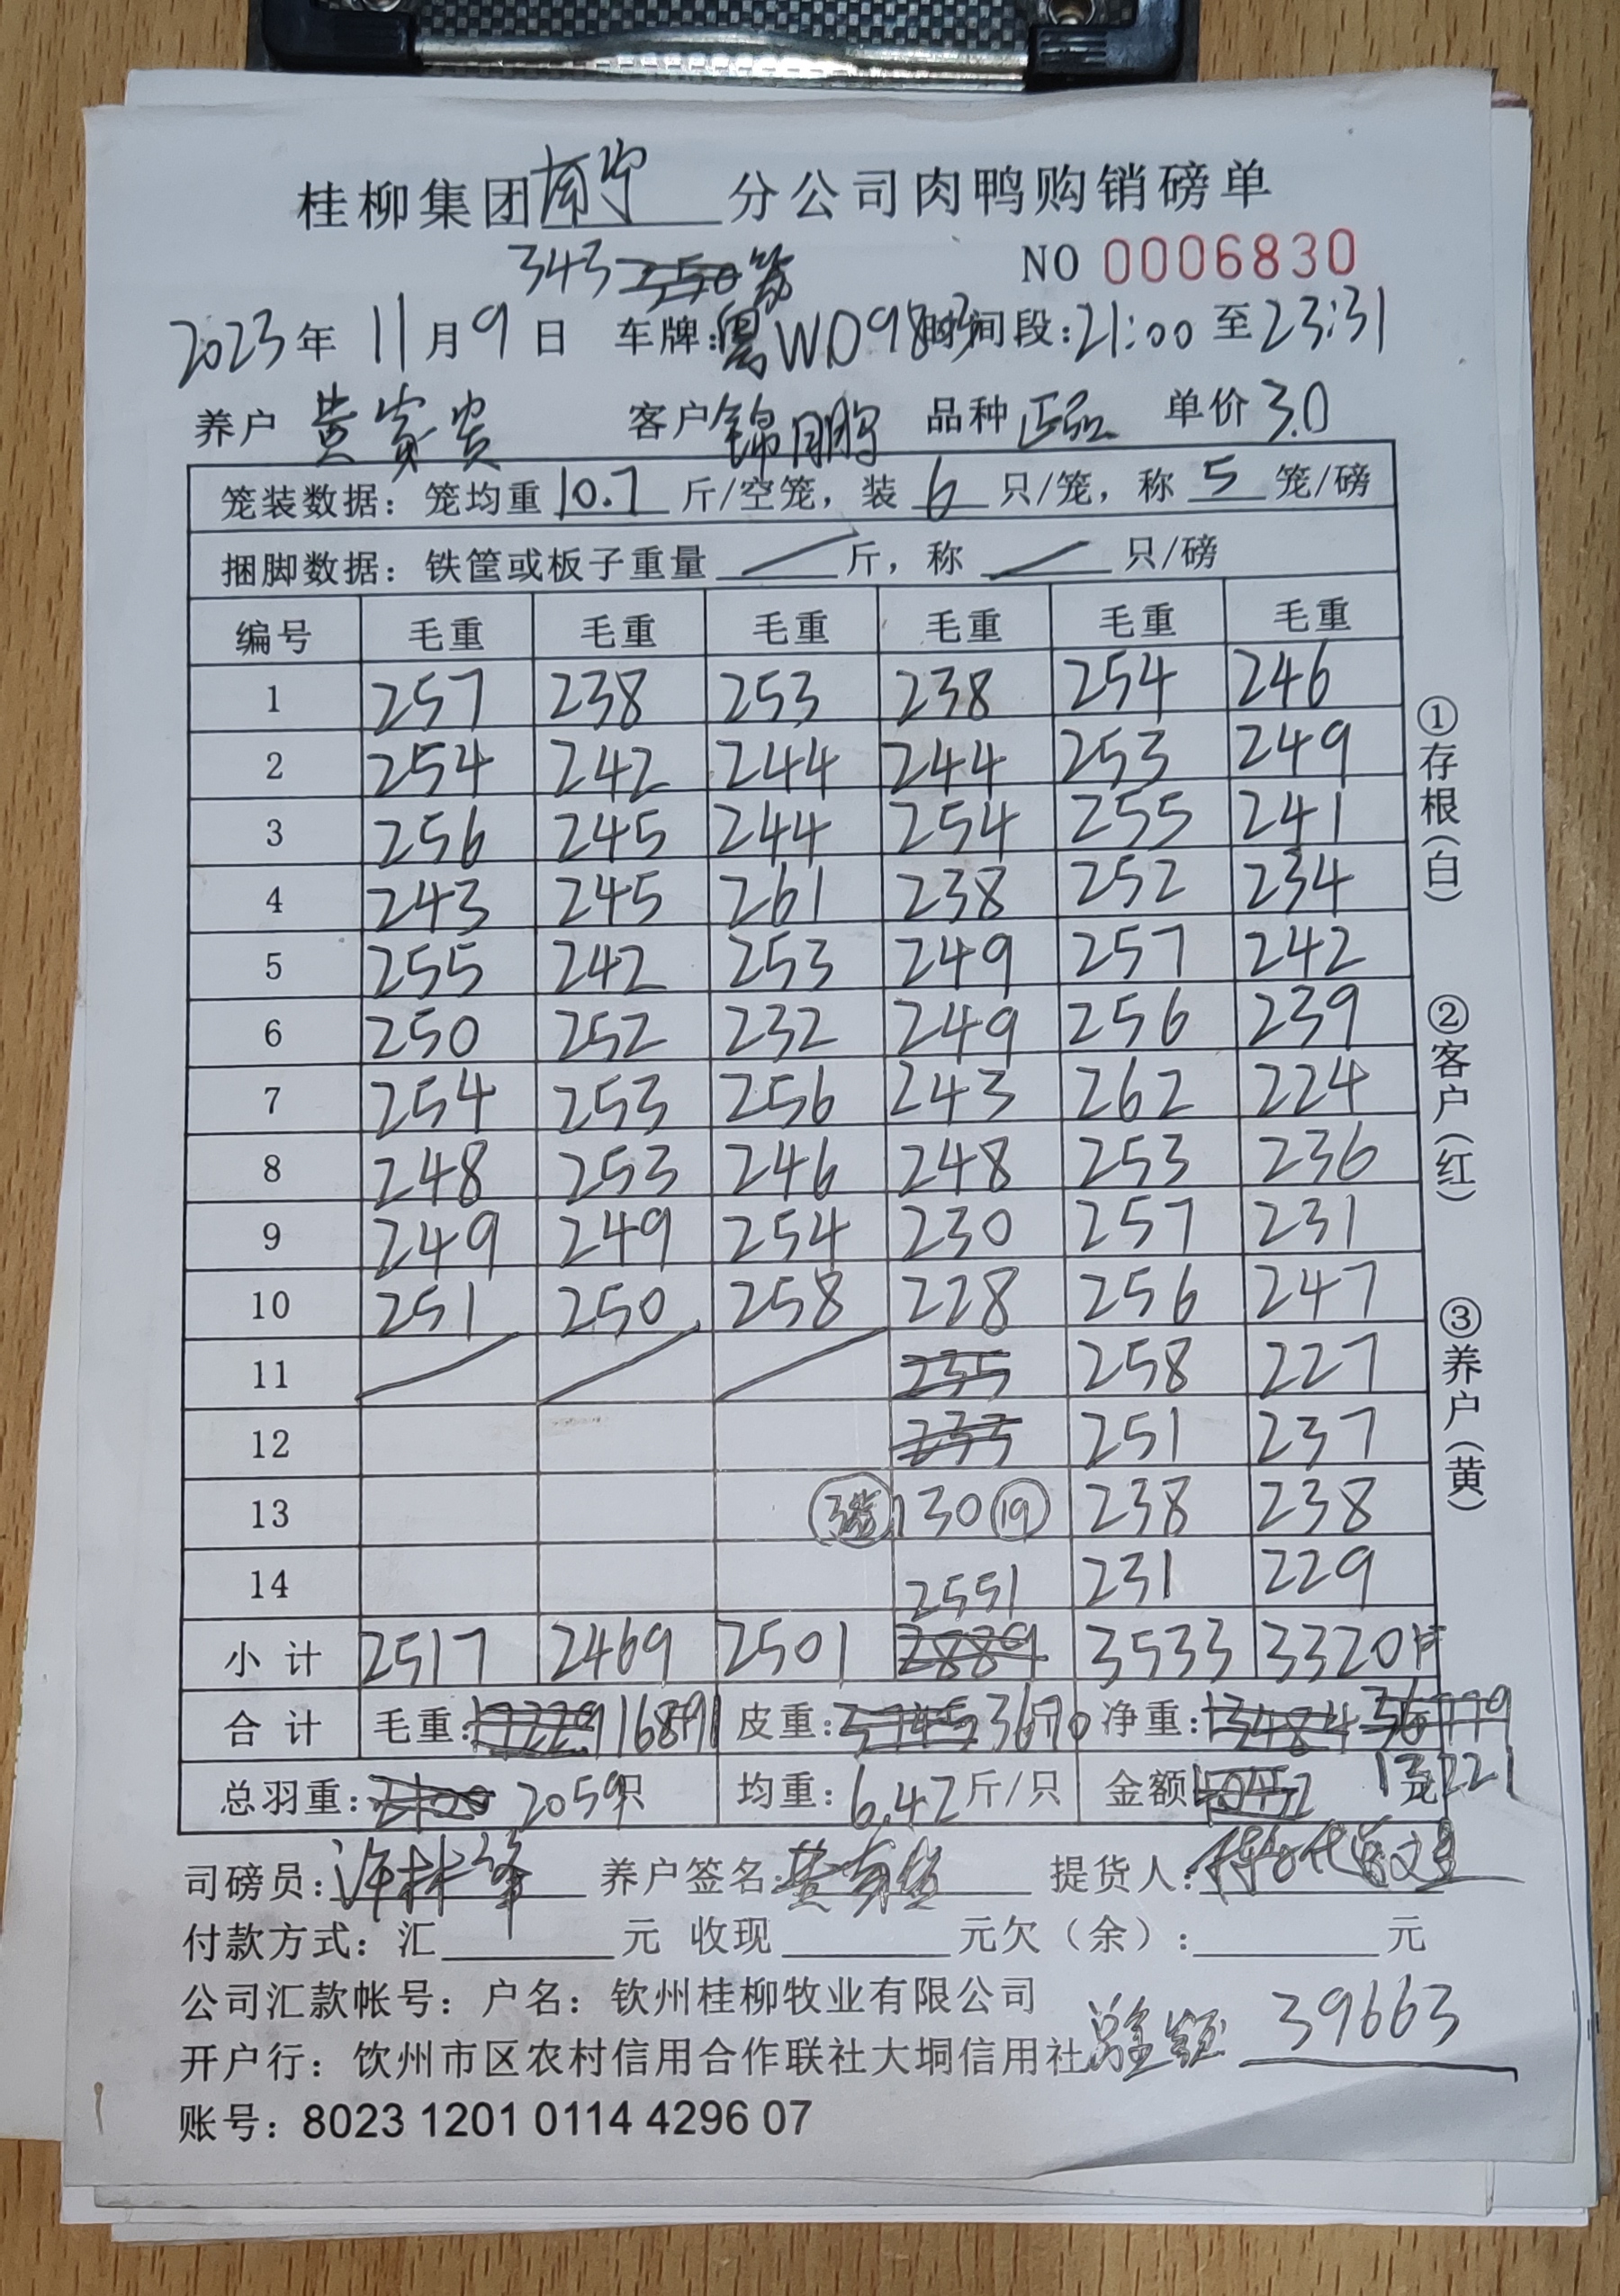 桂柳集团南宁分公司肉鸭购销磅单
343 350笼
NO 0006830
2023年11月9日 车牌:粤WD9803 时间段:21:00至23:31
养户 黄富贵 客户 锦鹏 品种 正品 单价 3.0
笼装数据：笼均重10.7斤/空笼，装6只/笼，称5笼/磅
捆脚数据：铁筐或板子重量 / 斤，称 / 只/磅
编号 毛重 毛重 毛重 毛重 毛重 毛重
1 257 238 253 238 254 246
2 254 242 244 244 253 249
3 256 245 244 254 255 241
4 243 245 261 238 252 234
5 255 242 253 249 257 242
6 250 252 232 249 256 239
7 254 253 256 243 262 224
8 248 253 246 248 253 236
9 249 249 254 230 257 231
10 251 250 258 228 256 247
11 / / / 235 258 227
12 233 251 237
13 3笼 130 19 238 238
14 2551 231 229
小计 2517 2469 2501 2889 3533 3320斤
合计 毛重:17229 16891 皮重:3745 3670 净重:13484
总羽重:2100 2059只 均重:6.42斤/只 金额:40452 元 13221
司磅员: 养户签名:黄富贵 提货人:
付款方式：汇 元 收现 元欠（余）: 元
公司汇款帐号：户名：钦州桂柳牧业有限公司
开户行：饮州市区农村信用合作联社大垌信用社 总金额 39663
账号：8023 1201 0114 4296 07
①存根(白)
②客户(红)
③养户(黄)